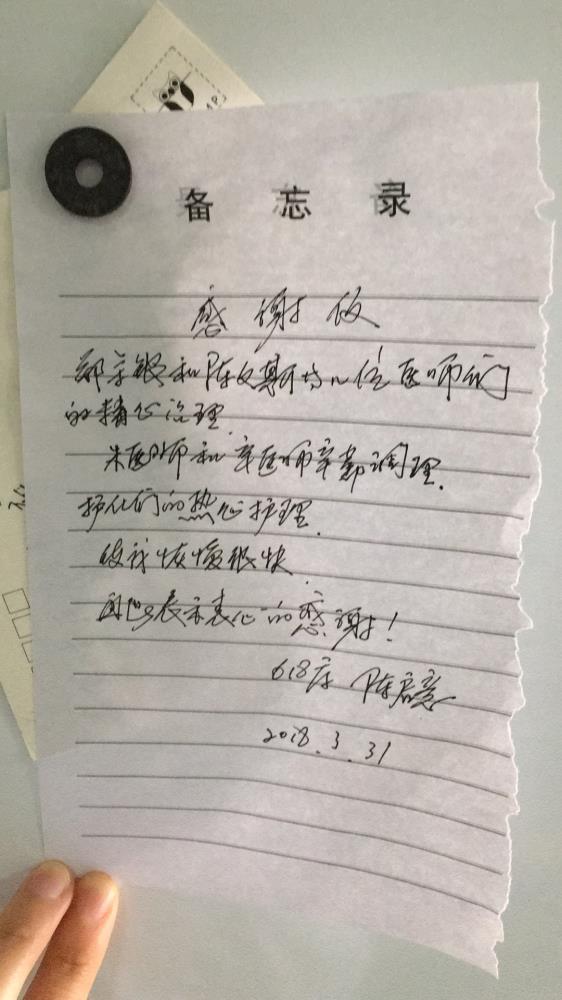 备忘录
感谢信
和陈文斯等几位医师们
的精心治理.
朱医师和辛医师辛勤调理.
护化们的热心护理.
使我恢复很快.
因此表示衷心的感谢!
618床 陈
2018.3.31